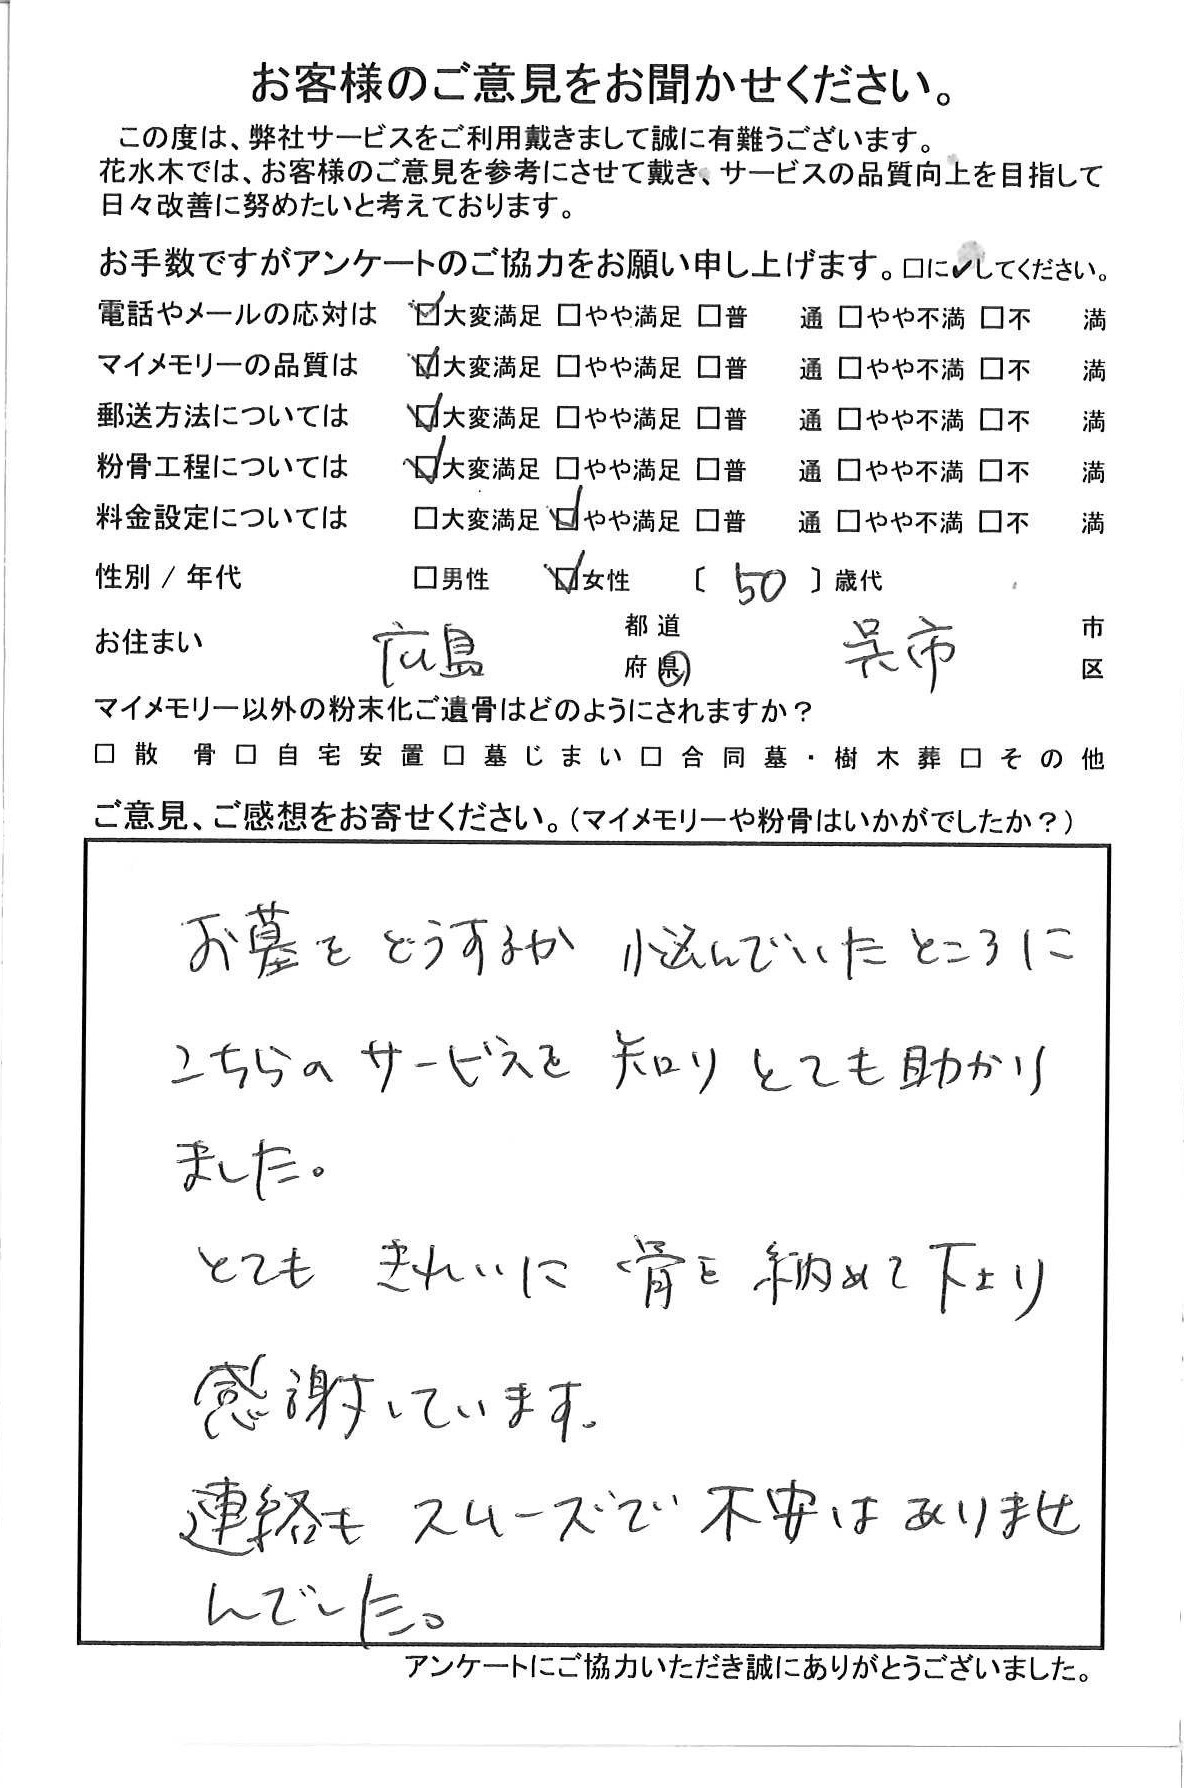 お客様のご意見をお聞かせください。
この度は、弊社サービスをご利用戴きまして誠に有難うございます。
花水木では、お客様のご意見を参考にさせて戴き、サービスの品質向上を目指して
日々改善に努めたいと考えております。
お手数ですがアンケートのご協力をお願い申し上げます。□に✓してください。
電話やメールの応対は ☑大変満足 □やや満足 □普 通 □やや不満 □不 満
マイメモリーの品質は ☑大変満足 □やや満足 □普 通 □やや不満 □不 満
郵送方法については ☑大変満足 □やや満足 □普 通 □やや不満 □不 満
粉骨工程については ☑大変満足 □やや満足 □普 通 □やや不満 □不 満
料金設定については □大変満足 ☑やや満足 □普 通 □やや不満 □不 満
性別 / 年代 □男性 ☑女性 〔 50 〕歳代
お住まい 広島 都道府県 呉市 市区
マイメモリー以外の粉末化ご遺骨はどのようにされますか？
□散 骨 □自宅安置 □墓じまい □合同墓・樹木葬 □その他
ご意見、ご感想をお寄せください。（マイメモリーや粉骨はいかがでしたか？）
お墓をどうするか 悩んでいたところに
こちらの サービスを 知りとても助かり
ました。
とても きれいに 骨を納めて下さり
感謝しています。
連絡も スムーズで 不安はありませ
んでした。
アンケートにご協力いただき誠にありがとうございました。